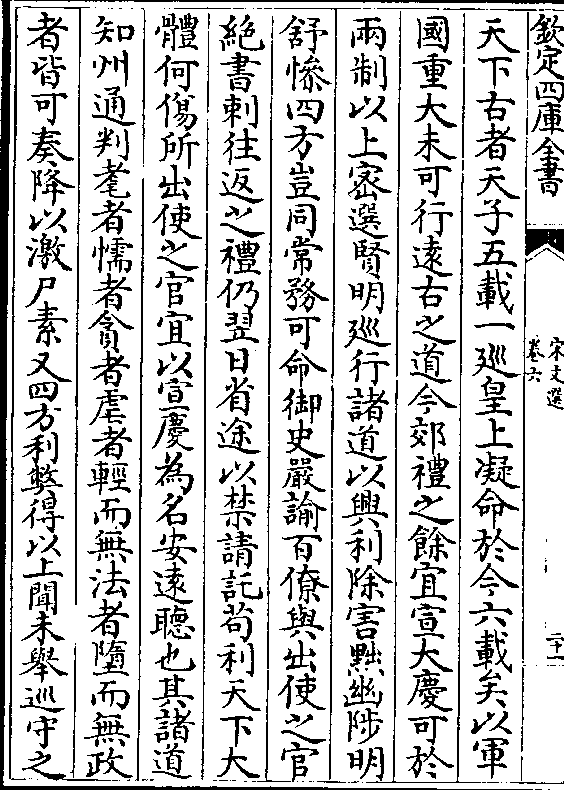 欽定四庫全書
宋文選
卷六
二十一
天下古者天子五載一廵皇上凝命於今六載矣以軍
國重大未可行逺古之道今郊禮之餘宜宣大慶可於
兩制以上密選賢明廵行諸道以興利除害黜幽陟明
舒慘四方豈同常務可命御史嚴諭百僚與出使之官
絶書刺往返之禮仍翌日省途以禁請託苟利天下大
體何傷所出使之官宜以宣慶為名安逺聽也其諸道
知州通判耄者懦者貪者虐者輕而無法者墮而無政
者皆可奏降以激尸素又四方利弊得以上聞未舉廵守之